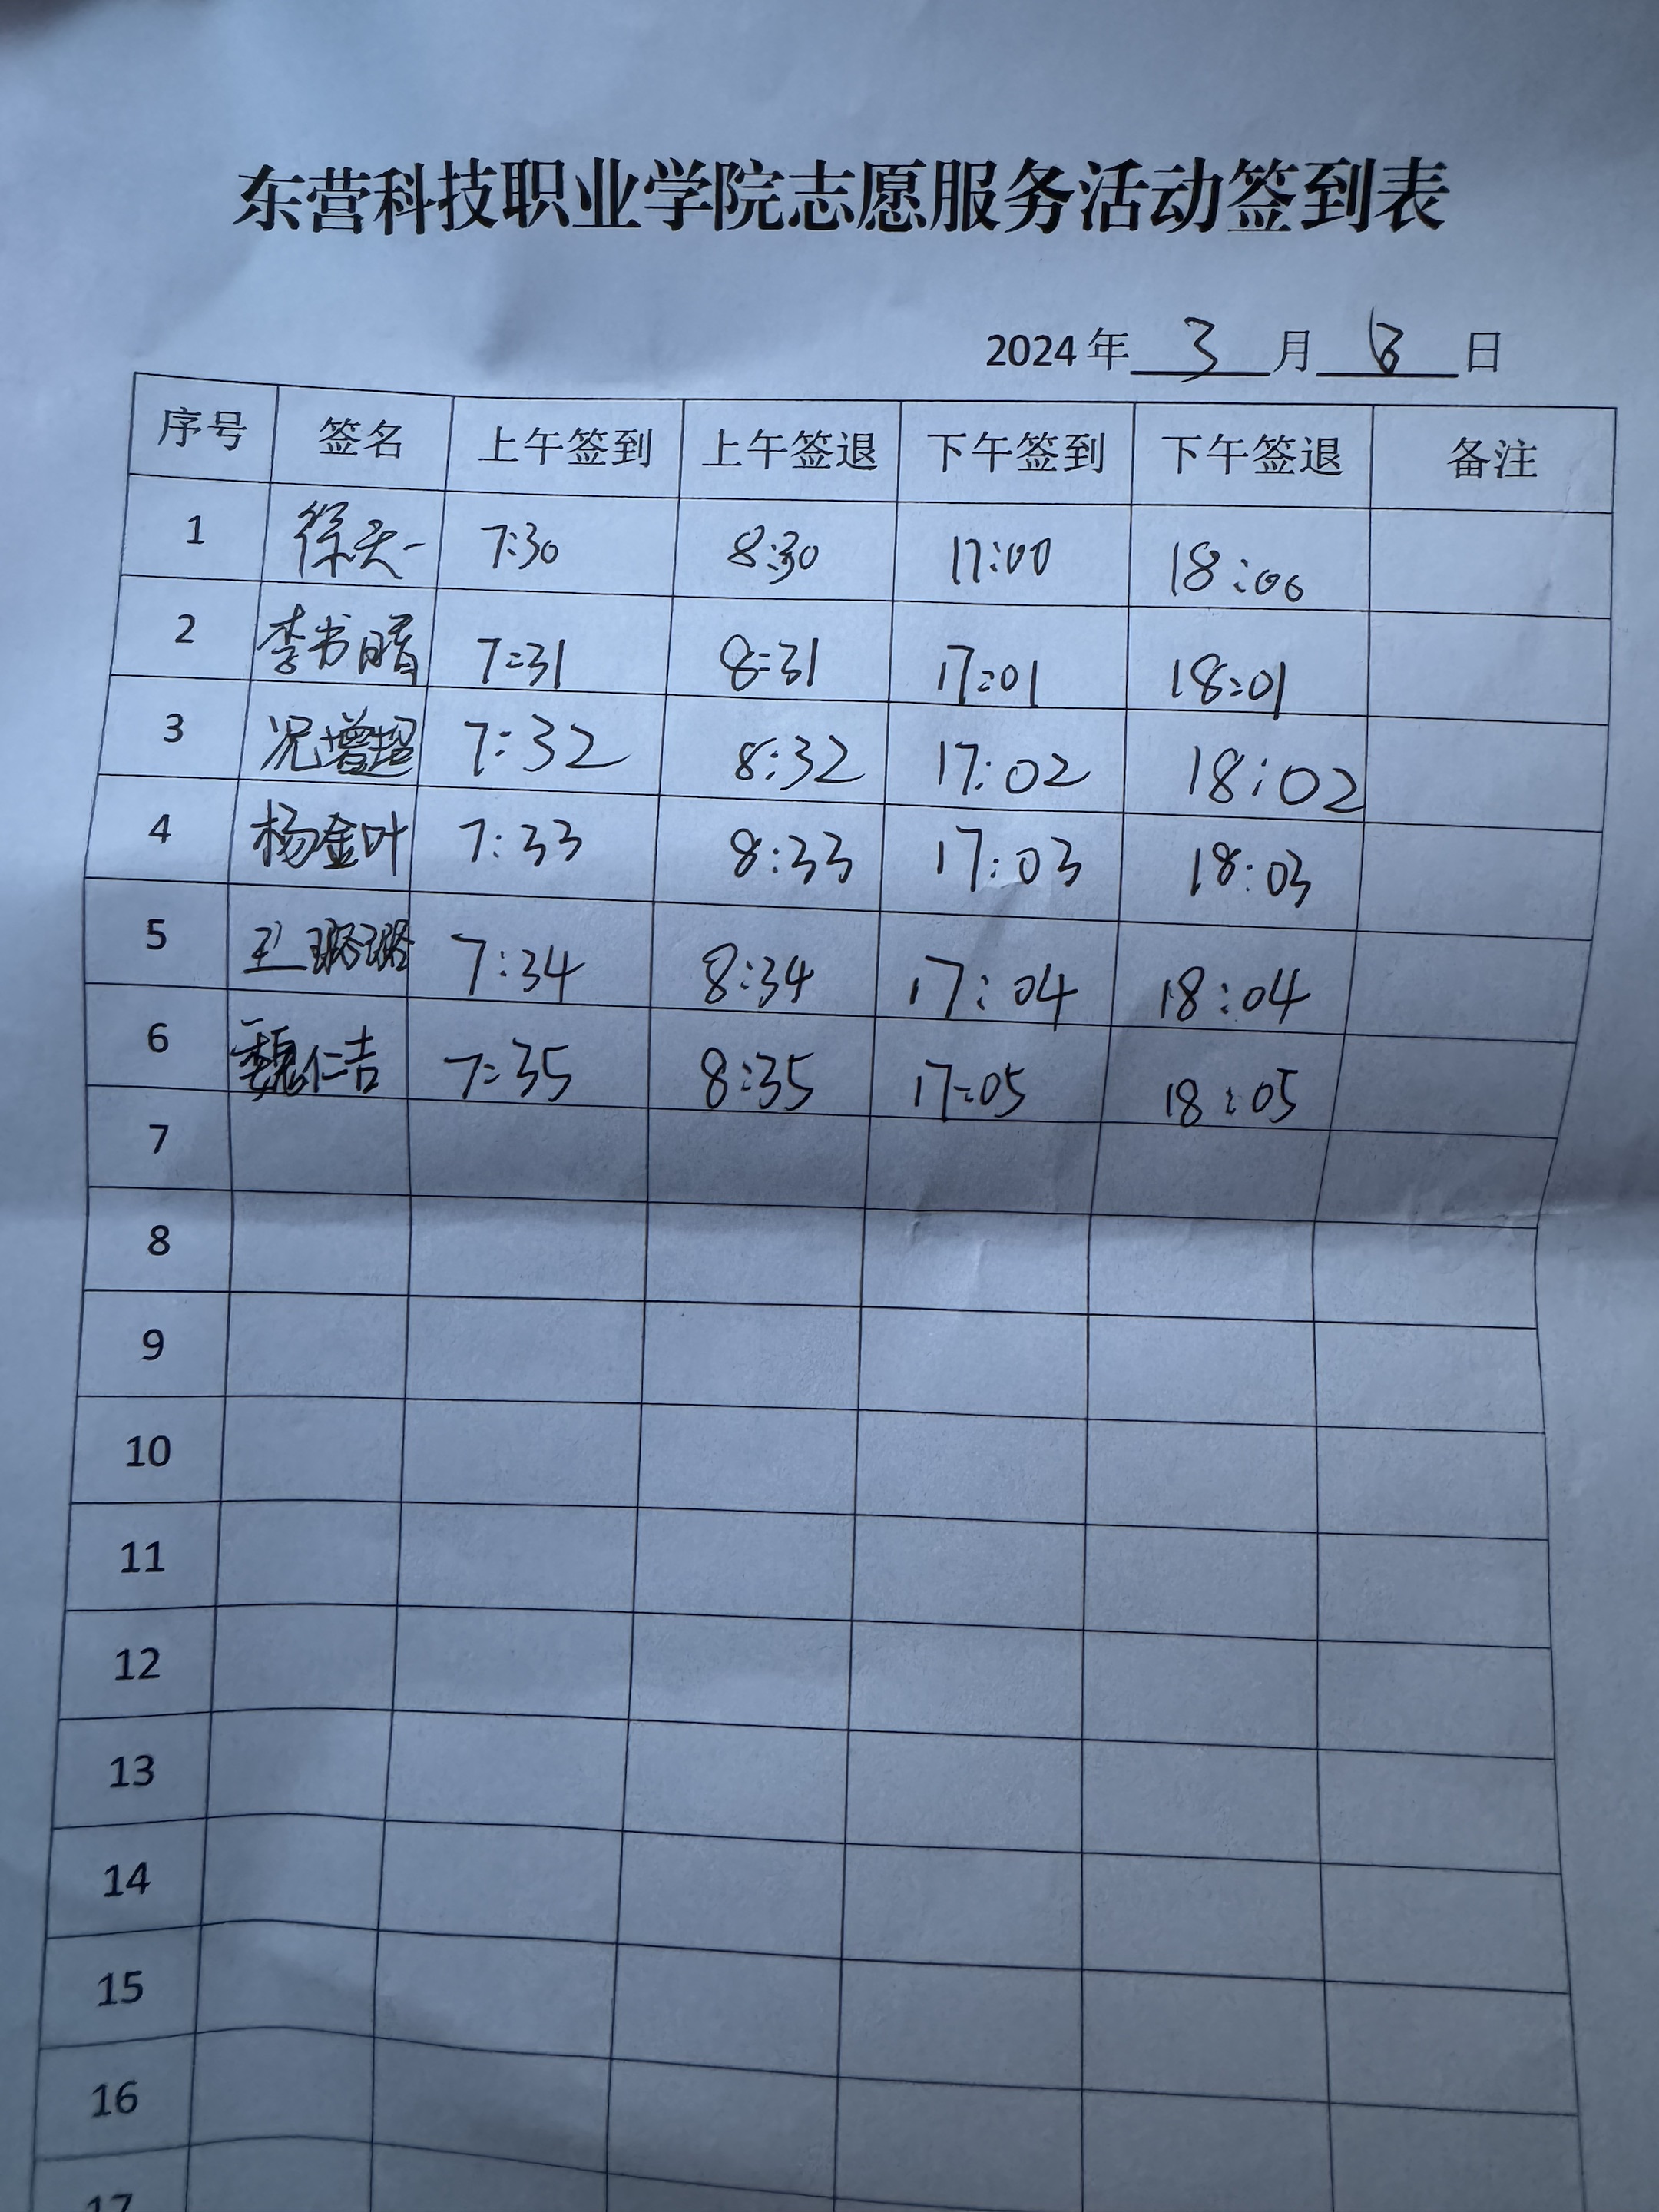 东营科技职业学院志愿服务活动签到表
2024 年 3 月 日
序号 签名 上午签到 上午签退 下午签到 下午签退 备注
1 徐天一 7:30 8:30 17:00 18:00
2 李书晴 7:31 8:31 17:01 18:01
3 况增超 7:32 8:32 17:02 18:02
4 杨金叶 7:33 8:33 17:03 18:03
5 王璐璐 7:34 8:34 17:04 18:04
6 魏仁吉 7:35 8:35 17:05 18:05
7
8
9
10
11
12
13
14
15
16
17